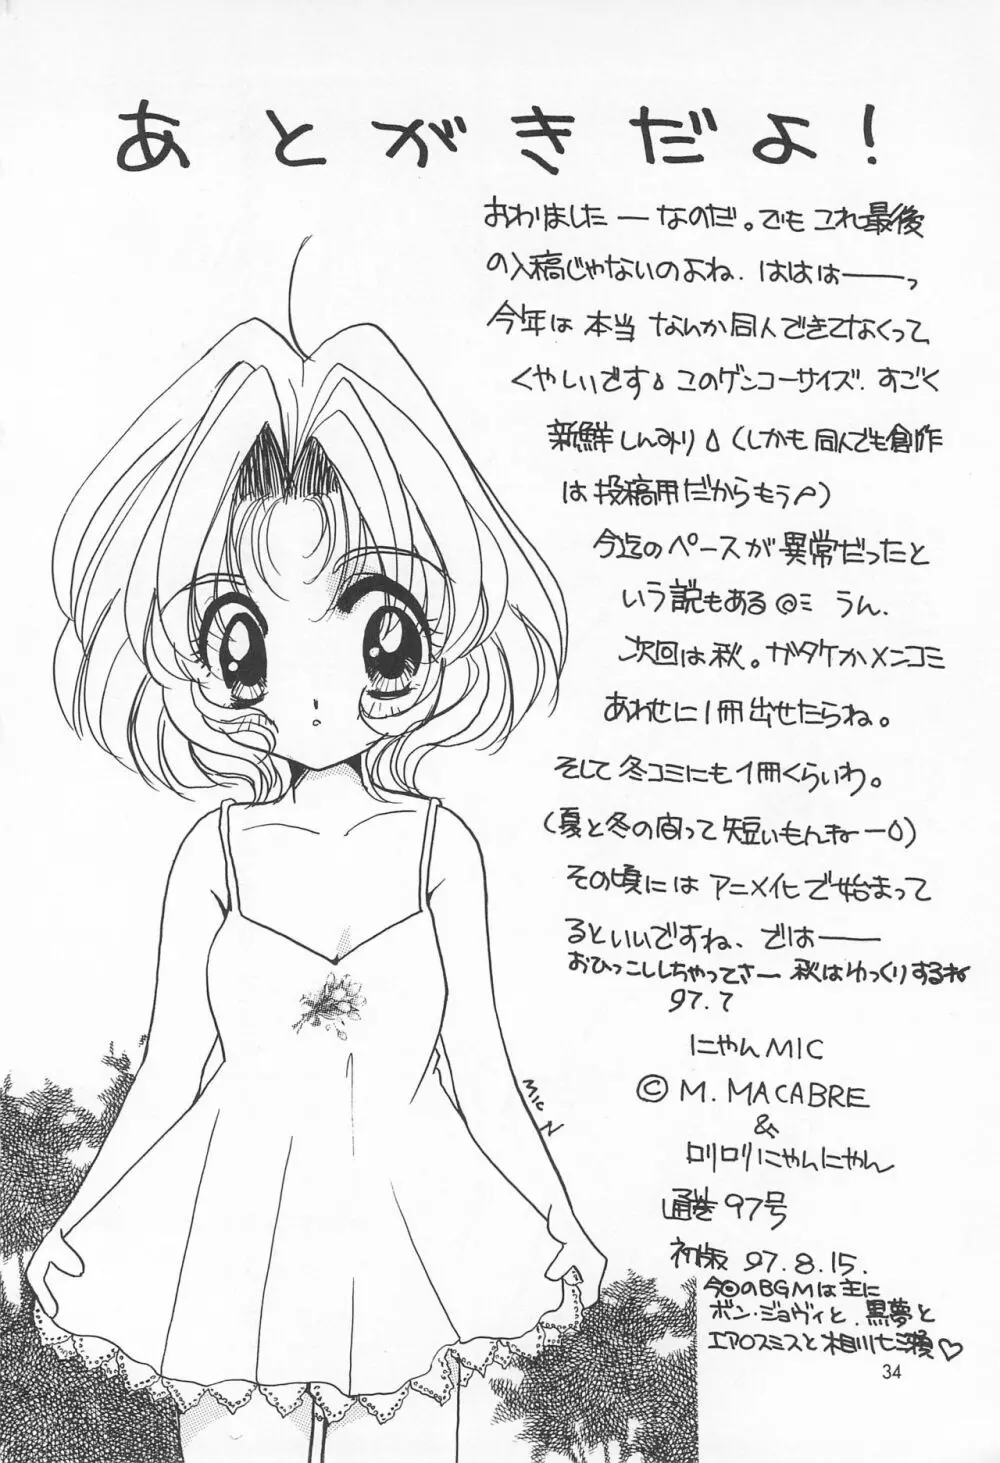 あとがきだよ!
おわりました―なのだ。でもこれ最後
の入稿じゃないのよね.ははは――っ
今年は本当なんか同人できてなくって
くやしいです。このゲンコーサイズ.すごく
新鮮しんみり(しかも同人でも創作
は投稿用だからもう)
今迄のペースが異常だったと
いう説もある@ミ うん.
次回は秋。ガタケかメンコミ
あわせに1冊出せたらね。
そして冬コミにも1冊くらいわ。
(夏と冬の間って短いもんねー)
その頃にはアニメイヒで始まって
るといいですね、では――
おひっこししちゃってさー 秋はゆっくりするね
97.7
にゃんMIC
© M. MACABRE
&
ロリロリにゃんにゃん
通巻97号
初版 97.8.15.
今回のBGMは主に
ボン・ジョヴィと、黒夢と
エアロスミスと相川七瀬♡
MIC N
34